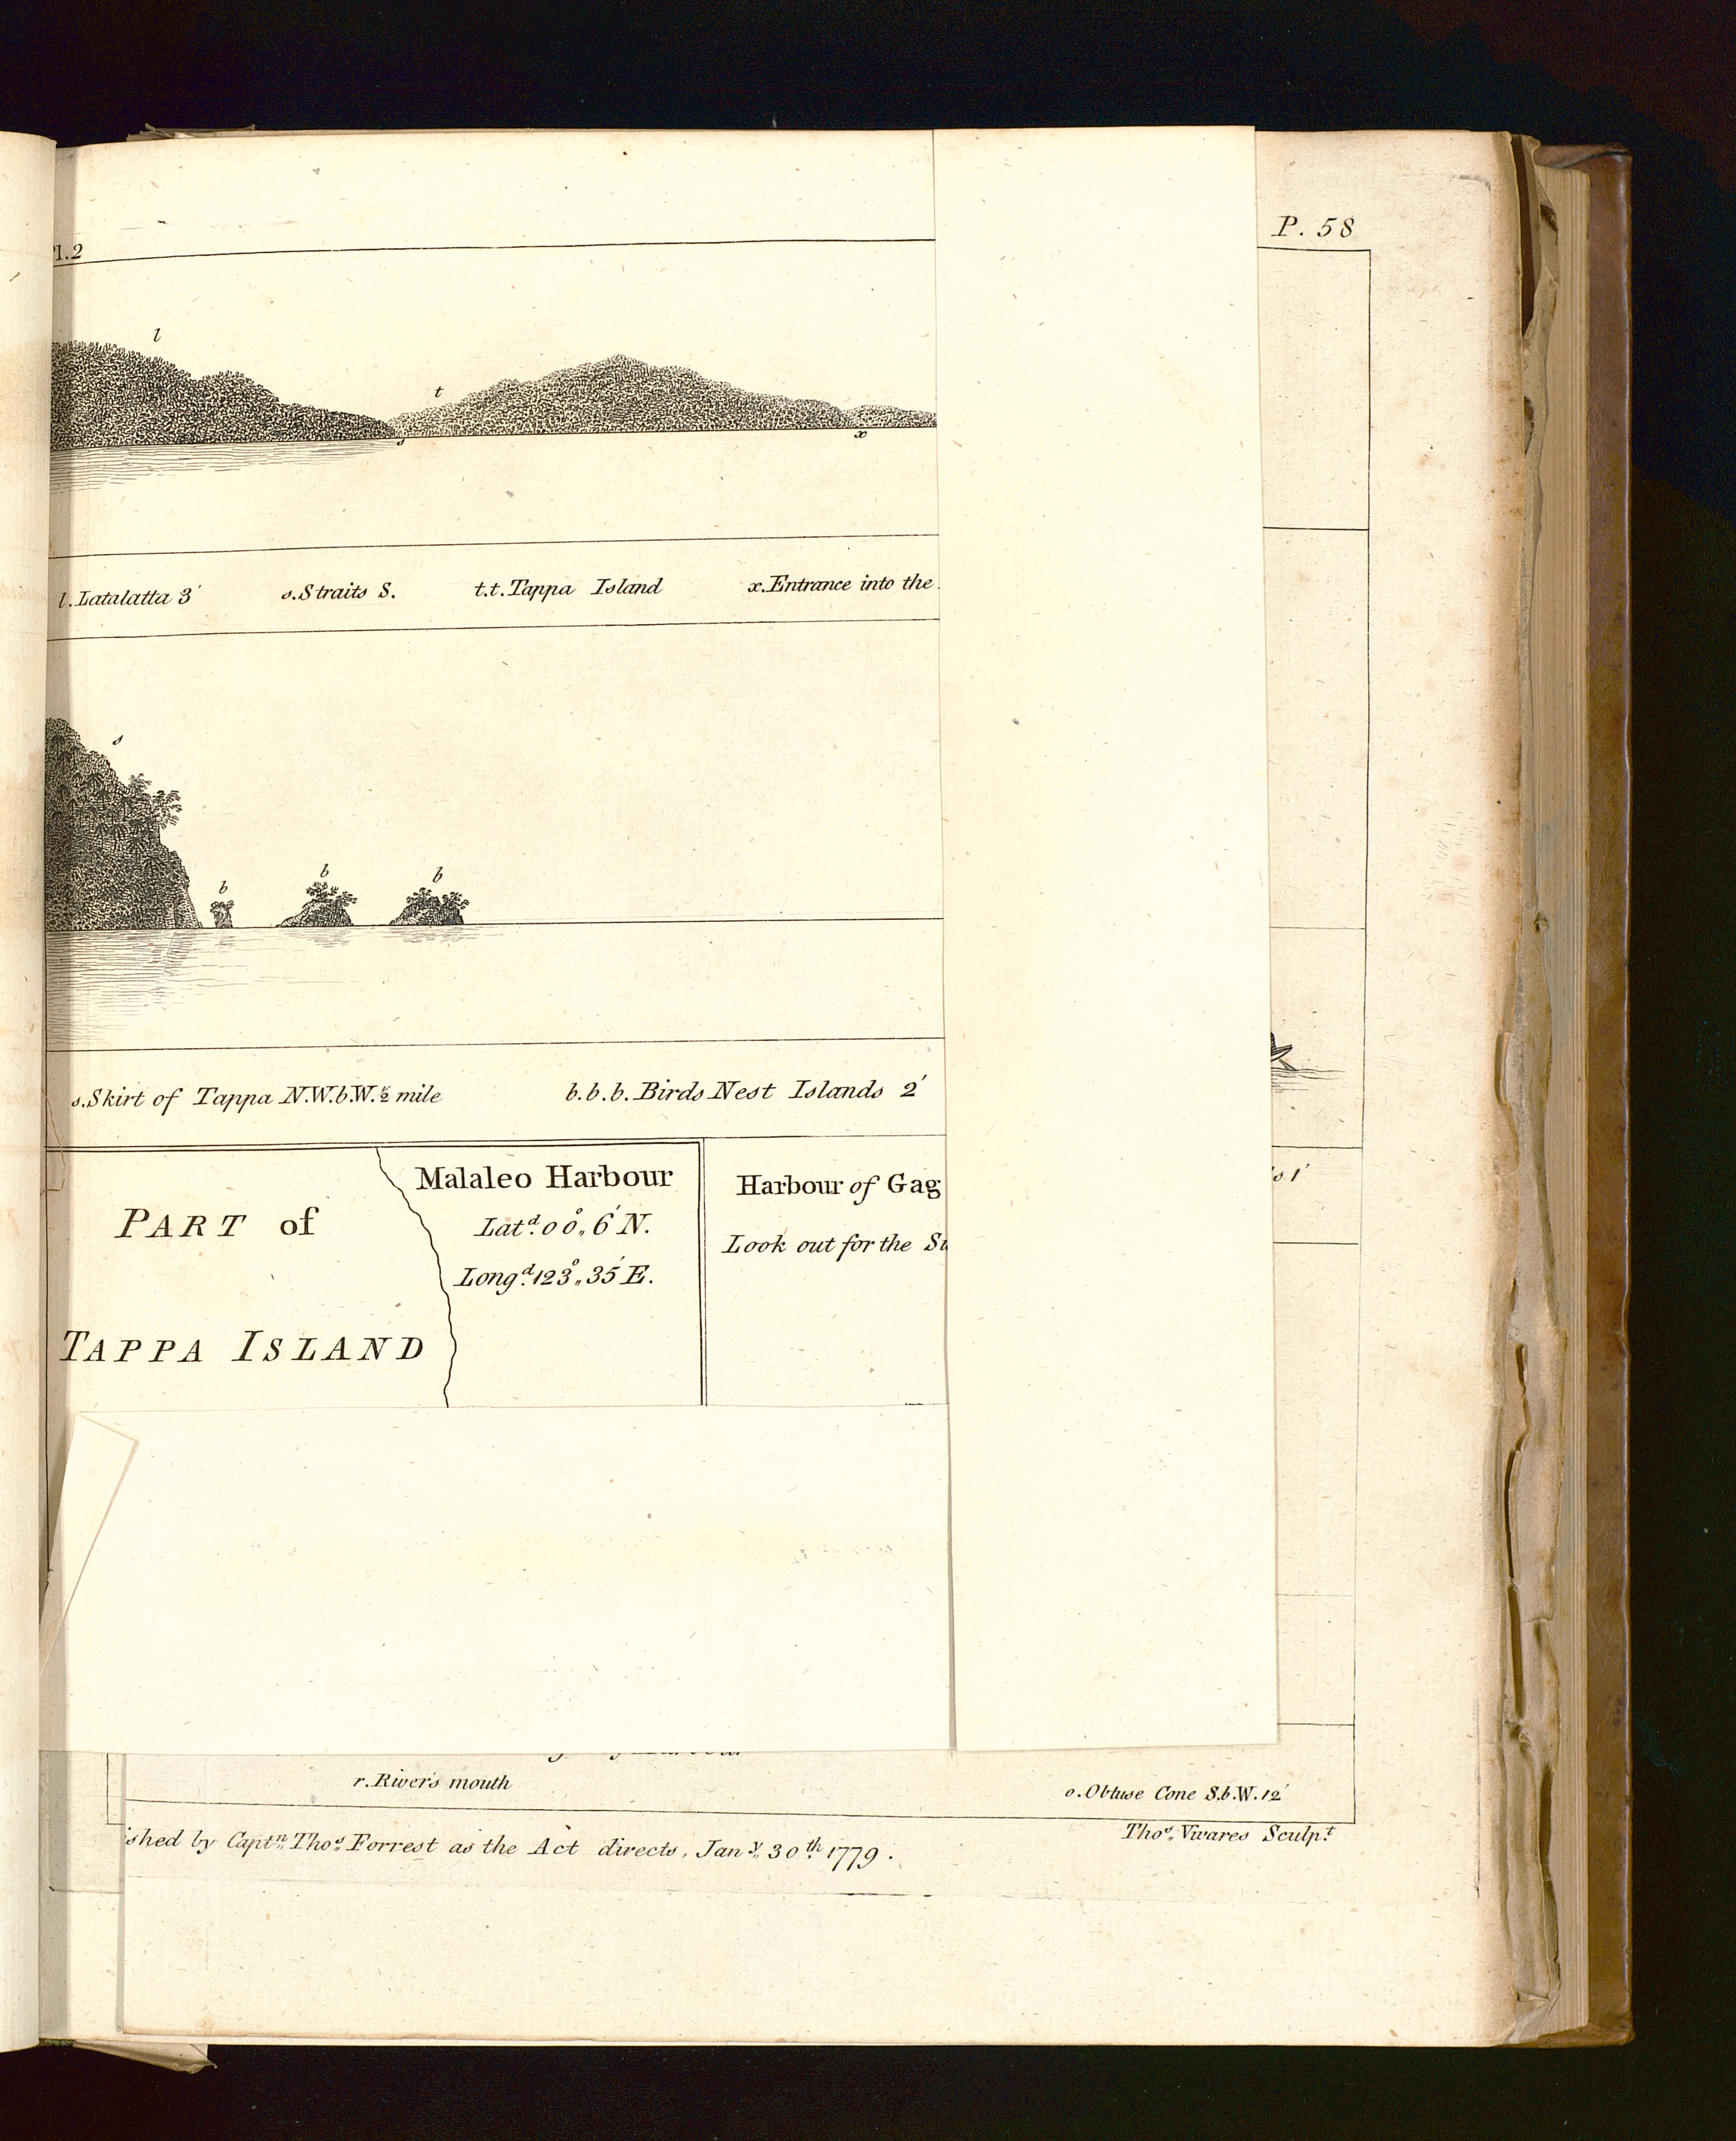 Pl.2
P. 58
l
t
s
x
l.Latalatta 3' s.Straits S. t.t.Tappa Island x.Entrance into the
s
b b b
s.Skirt of Tappa N.W.b.W.½ mile b.b.b. Birds Nest Islands 2'
Malaleo Harbour
Latd. 00°,, 6' N.
Longd. 123°,, 35' E.
PART of
TAPPA ISLAND
Harbour of Gag
Look out for the
s 1'
r.River's mouth
o.Obtuse Cone S.b.W.12'
ished by Captn. Thos. Forrest as the Act directs, Jany. 30th. 1779.
Thos. Vivares Sculpt.